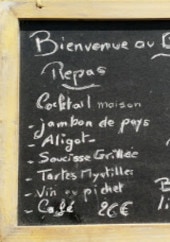 Bienvenue au
Repas
Cocktail maison
- jambon de pays
- Aligot -
- Saucisse Grillée
- Tartes Myrtilles
- Vin en pichet
- Café 26€